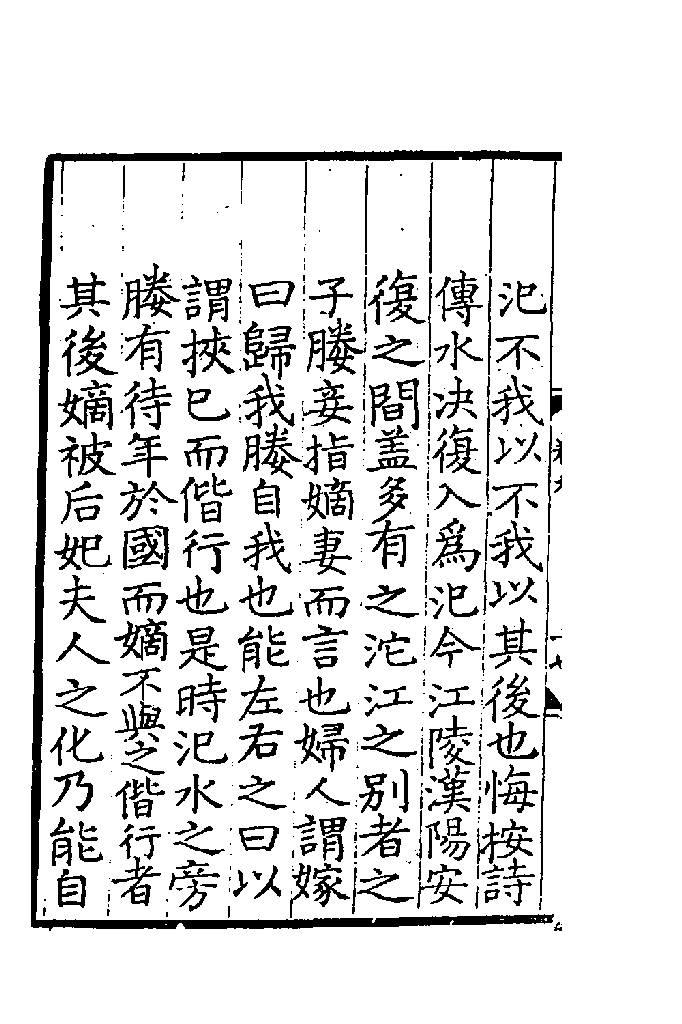 汜不我以不我以其後也悔按詩
傳水决復入爲汜今江陵漢陽安
復之間盖多有之沱江之别者之
子媵妾指嫡妻而言也婦人謂嫁
曰歸我媵自我也能左右之曰以
謂挾已而偕行也是時汜水之旁
媵有待年於國而嫡不與之偕行者
其後嫡被后妃夫人之化乃能自